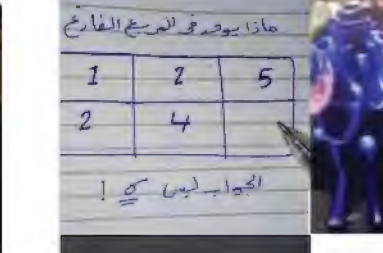 ماذا يوجد في المربع الفارغ
1 2 5
2 4
الجواب ليس !